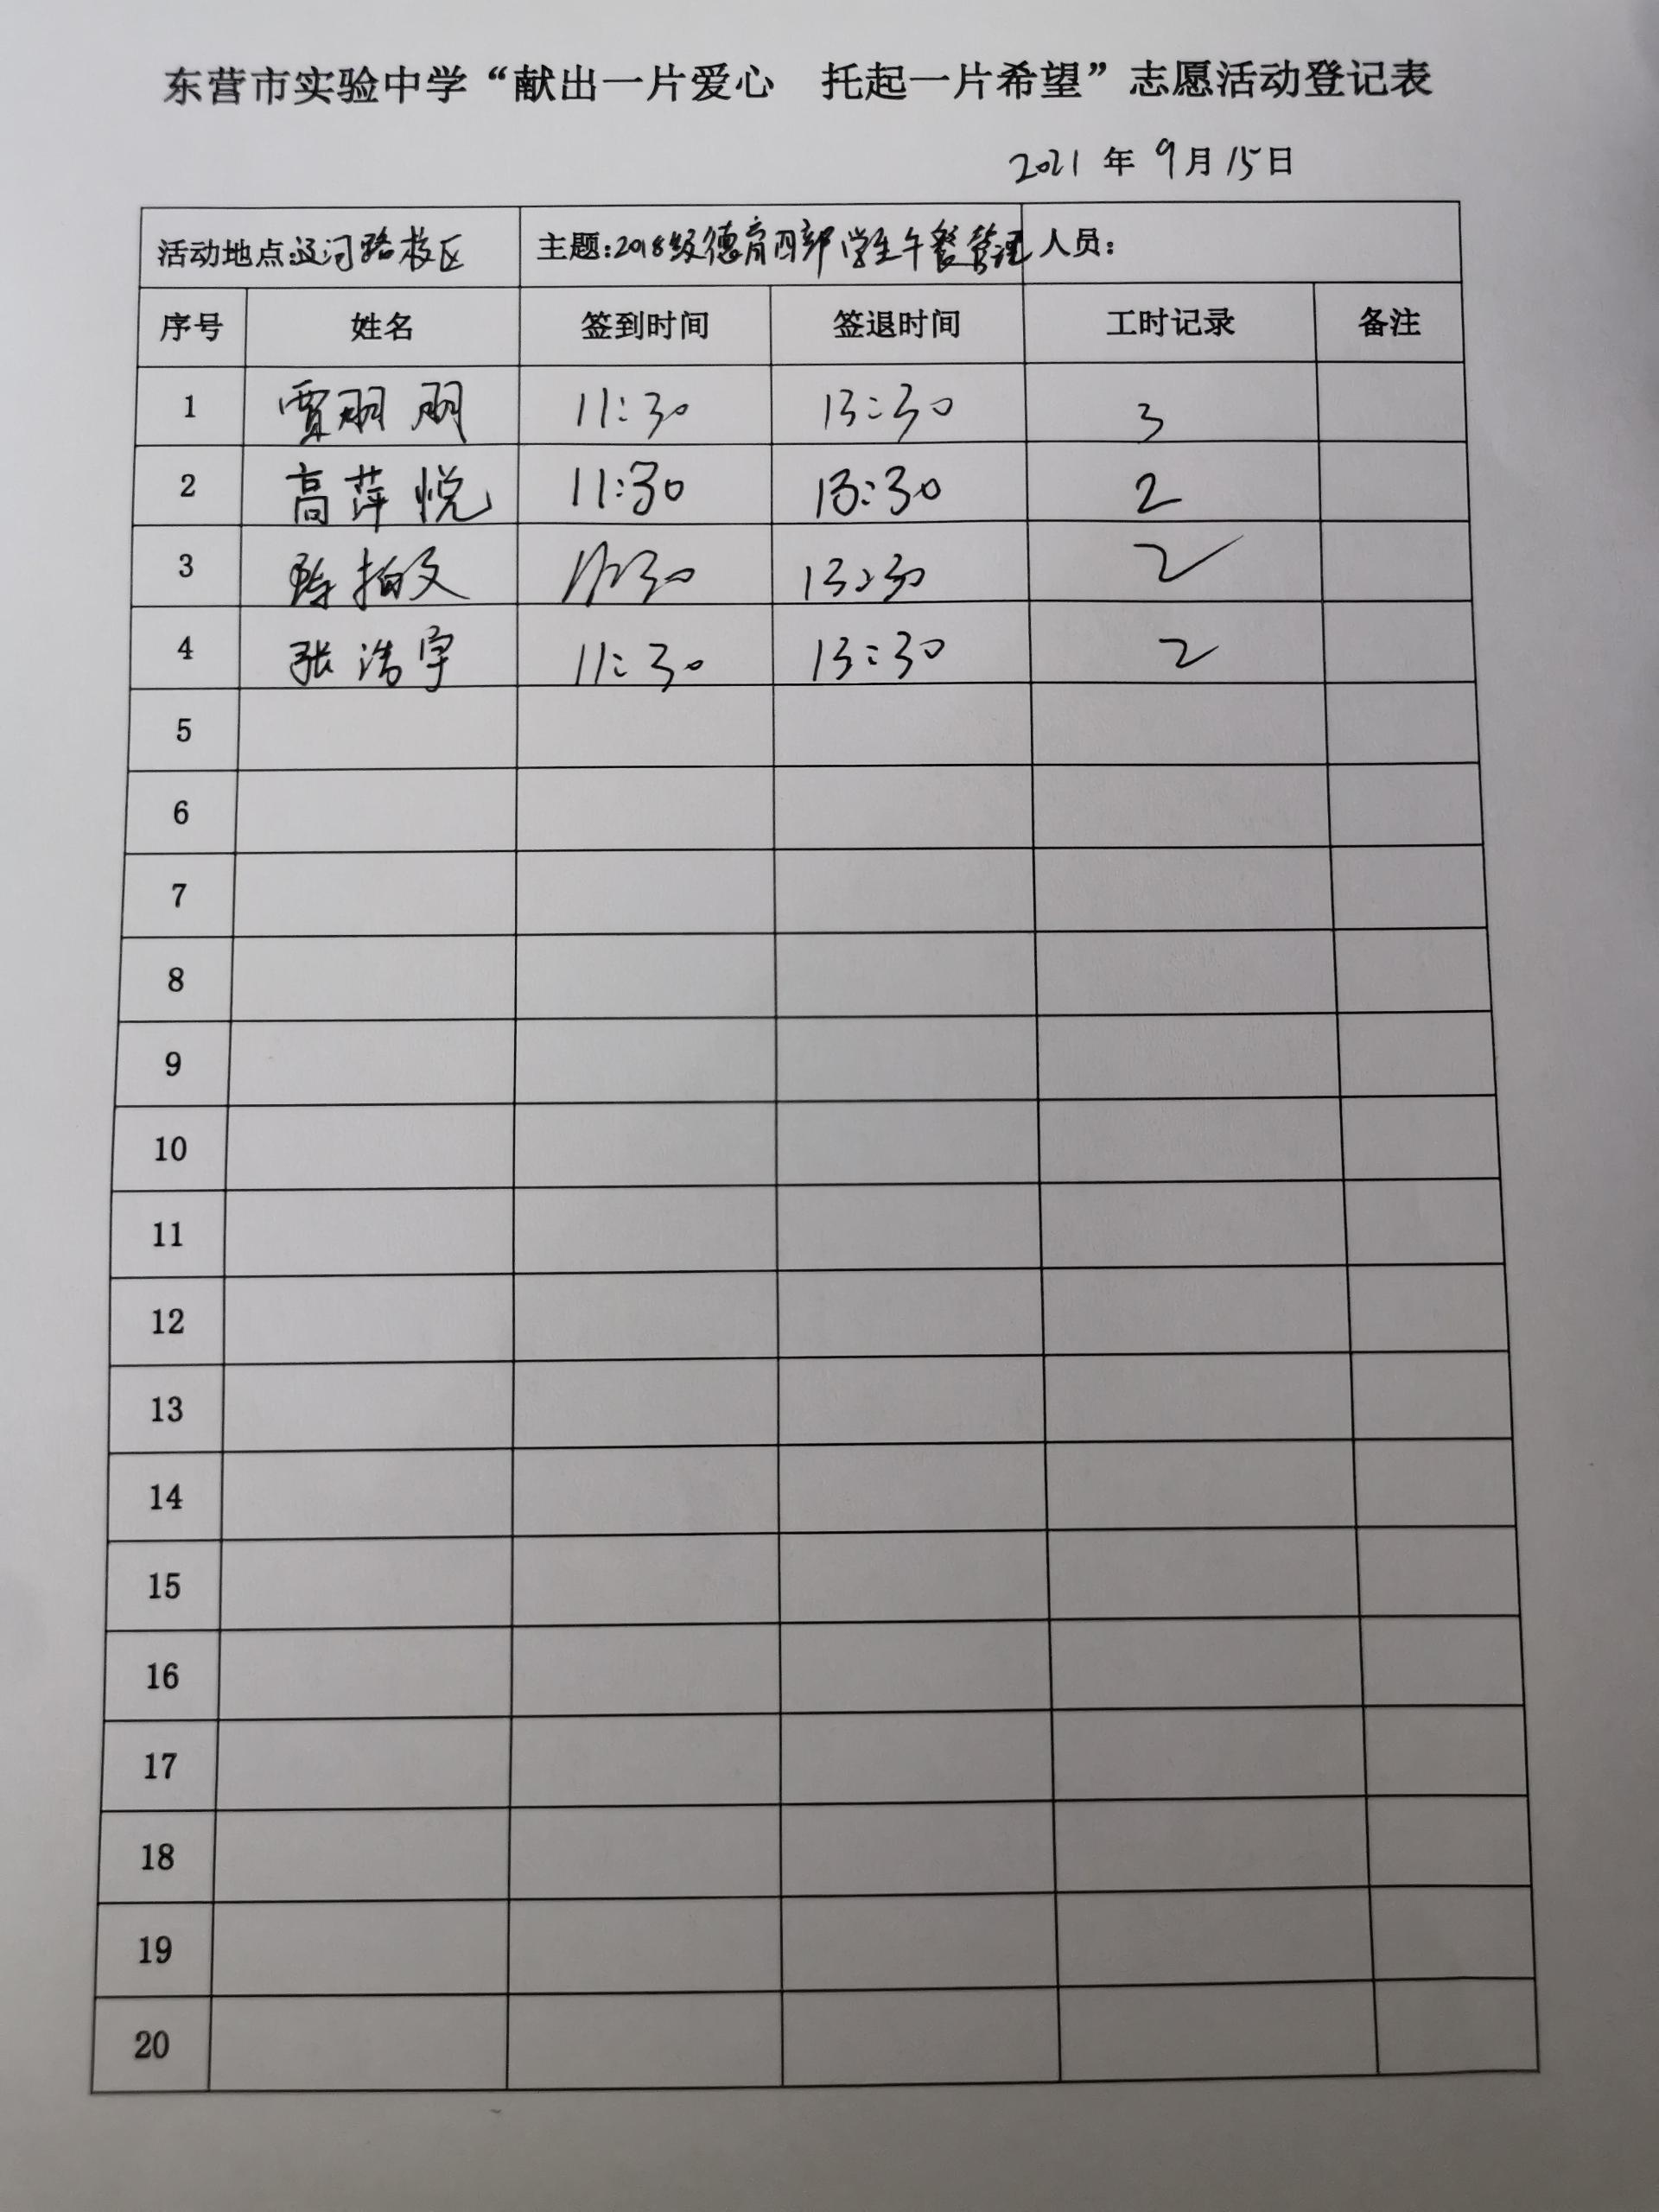 东营市实验中学“献出一片爱心 托起一片希望”志愿活动登记表
2021 年 9 月 15 日
活动地点:辽河路校区 主题:2018级德育四部学生午餐管理 人员:
序号 姓名 签到时间 签退时间 工时记录 备注
1 贾 朋 11:30 13:30 3
2 高萍悦 11:30 13:30 2
3 陈柏文 11:30 13:30 2
4 张浩宇 11:30 13:30 2
5
6
7
8
9
10
11
12
13
14
15
16
17
18
19
20